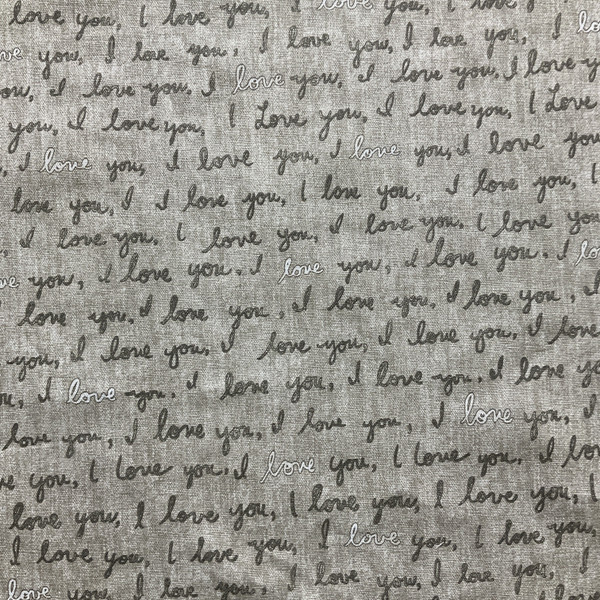 love you, I love you, I love you, I love
love you, I love you, I love you, I love you, I lo
you, I love you, I love you, I love you, I love y
you, I love you, I Love you, I love you, I Love
, I love you, I love you, I love you, I love you
love you, I I love you, I love you, I love you, I
, I love you, I love you, I love you. I love you
ve you, I love you. I love you, I love you. I lo
love you, I love you, I love you, I love you, I
you, I love you, I love you, I love you, I love
u, I love you. I love you, I love you, I love yo
love you, I love you, I love you, I love you, I
ve you, I love you, I love you, I love you, I lov
love you, I love you, I love you, I love you, I
I love you, I love you, I love you, I love you,
love you, I love you. I love you, I love you, I